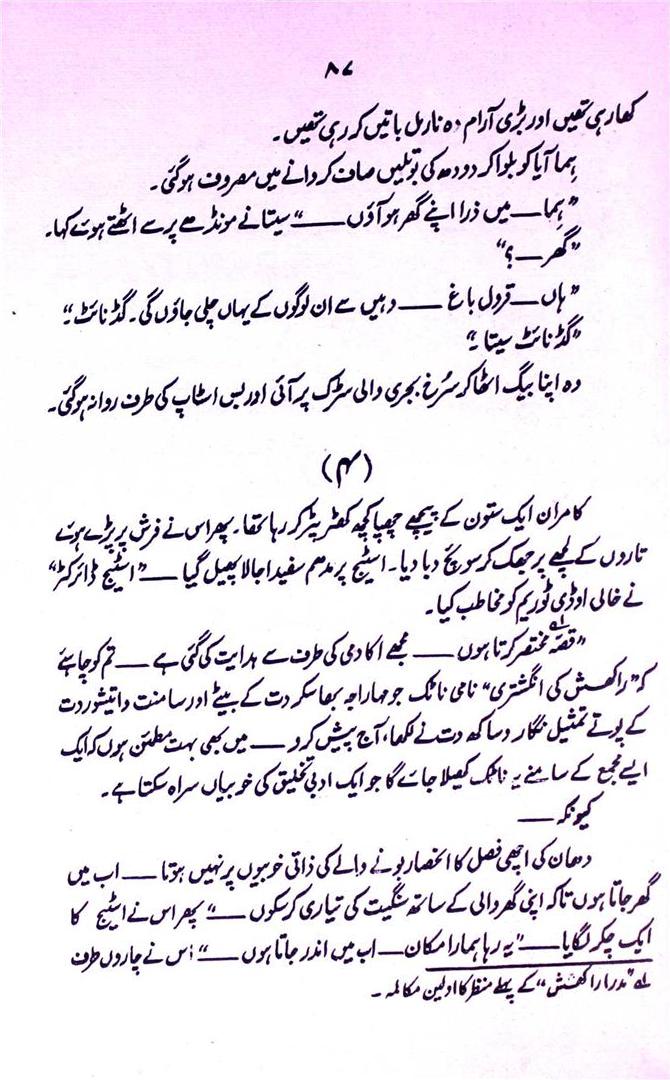 ۸۷
کھا رہی تھیں اور بڑی آرام دہ نارمل باتیں کر رہی تھیں۔
ہِما آیا کو بلوا کر دودھ کی بوتلیں صاف کروانے میں مصروف ہوگئی۔
"ہِما — میں ذرا اپنے گھر ہو آؤں —" سیتا نے مونڈھے پر سے اٹھتے ہوئے کہا۔
"گھر —؟"
"ہاں — قرول باغ — وہیں سے ان لوگوں کے یہاں چلی جاؤں گی۔ گڈ نائٹ۔"
"گڈ نائٹ سیتا۔"
وہ اپنا بیگ اٹھا کر سُرخ بجری والی سڑک پر آئی اور بس اسٹاپ کی طرف روانہ ہوگئی۔
(۴)
کامران ایک ستون کے پیچھے چھپا کچھ کھٹر پٹر کر رہا تھا۔ پھر اس نے فرش پر پڑے ہوئے
تاروں کے لچھے پر جھک کر سوئچ دبا دیا۔ اسٹیج پر مدھم سفید اجالا پھیل گیا — "اسٹیج ڈائرکٹر"
نے خالی اوڈی ٹوریم کو مخاطب کیا۔
"قصّہ مختصر کرتا ہوں لے — مجھے اکادمی کی طرف سے ہدایت کی گئی ہے — تم کو چاہئے
کہ "راکھشش کی انگشتری" نامی ناٹک جو مہاراجہ بھاسکر دت کے بیٹے اور سامنت واتیشور دت
کے پوتے تمثیل نگار وساکھ دت نے لکھا، آج پیش کرو — میں بھی بہت مطمئن ہوں کہ ایک
ایسے مجمع کے سامنے یہ ناٹک کھیلا جائے گا جو ایک ادبی تخلیق کی خوبیاں سراہ سکتا ہے۔
کیونکہ —
دھان کی اچھی فصل کا انحصار بونے والے کی ذاتی خوبیوں پر نہیں ہوتا — اب میں
گھر جاتا ہوں تاکہ اپنی گھر والی کے ساتھ سنگیت کی تیاری کر سکوں —" پھر اس نے اسٹیج کا
ایک چکر لگایا — "یہ رہا ہمارا مکان — اب میں اندر جاتا ہوں —" اُس نے چاروں طرف
لے "مدرا راکھشش" کے پہلے منظر کا اولین مکالمہ۔